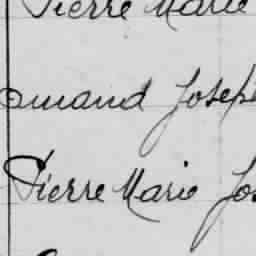 Pierre Marie
mand Joseph
Pierre Marie Jos